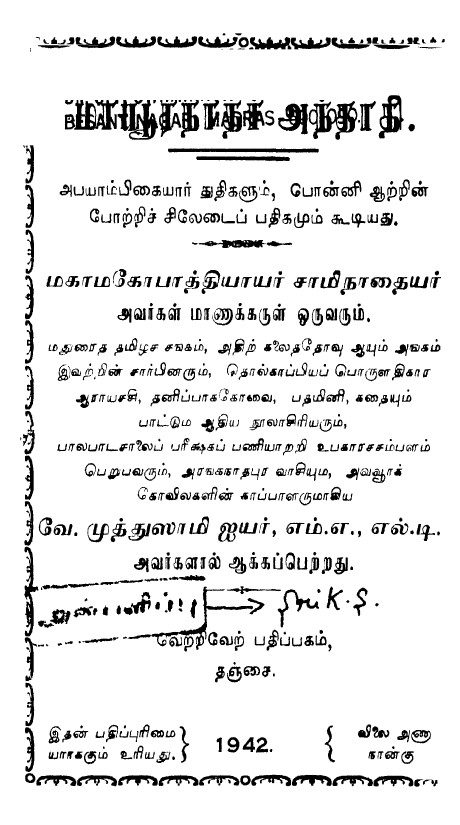 மாயூரநாதர் அந்தாதி.
BESANT NAGAR MADRAS
அபயாம்பிகையார் துதிகளும், பொன்னி ஆற்றின்
போற்றிச் சிலேடைப் பதிகமும் கூடியது.
மகாமகோபாத்தியாயர் சாமிநாதையர்
அவர்கள் மாணுக்கருள் ஒருவரும்,
மதுரைத தமிழச சங்கம், அதிற் கலைததேர்வு ஆயும் அங்கம்
இவற்றின் சார்பினரும், தொல்காப்பியப் பொருளதிகார
ஆராயசசி, தனிப்பாககோவை, பதமினி, கதையும்
பாட்டும ஆதிய நூலாசிரியரும்,
பாலபாடசாலைப் பரீக்ஷகப் பணியாறறி உபகாரசசம்பளம்
பெறுபவரும், அரஙகநாதபுர வாசியும, அவவூர்க்
கோவிலகளின் காப்பாளருமாகிய
வே. முத்துஸாமி ஐயர், எம்.ஏ., எல்.டி.
அவர்களால் ஆக்கப்பெற்றது.
Sri K. S.
வெற்றிவேற் பதிப்பகம்,
தஞ்சை.
இதன் பதிப்புரிமை } 1942. { விலை அணு
யாரககும் உரியது. } { நான்கு